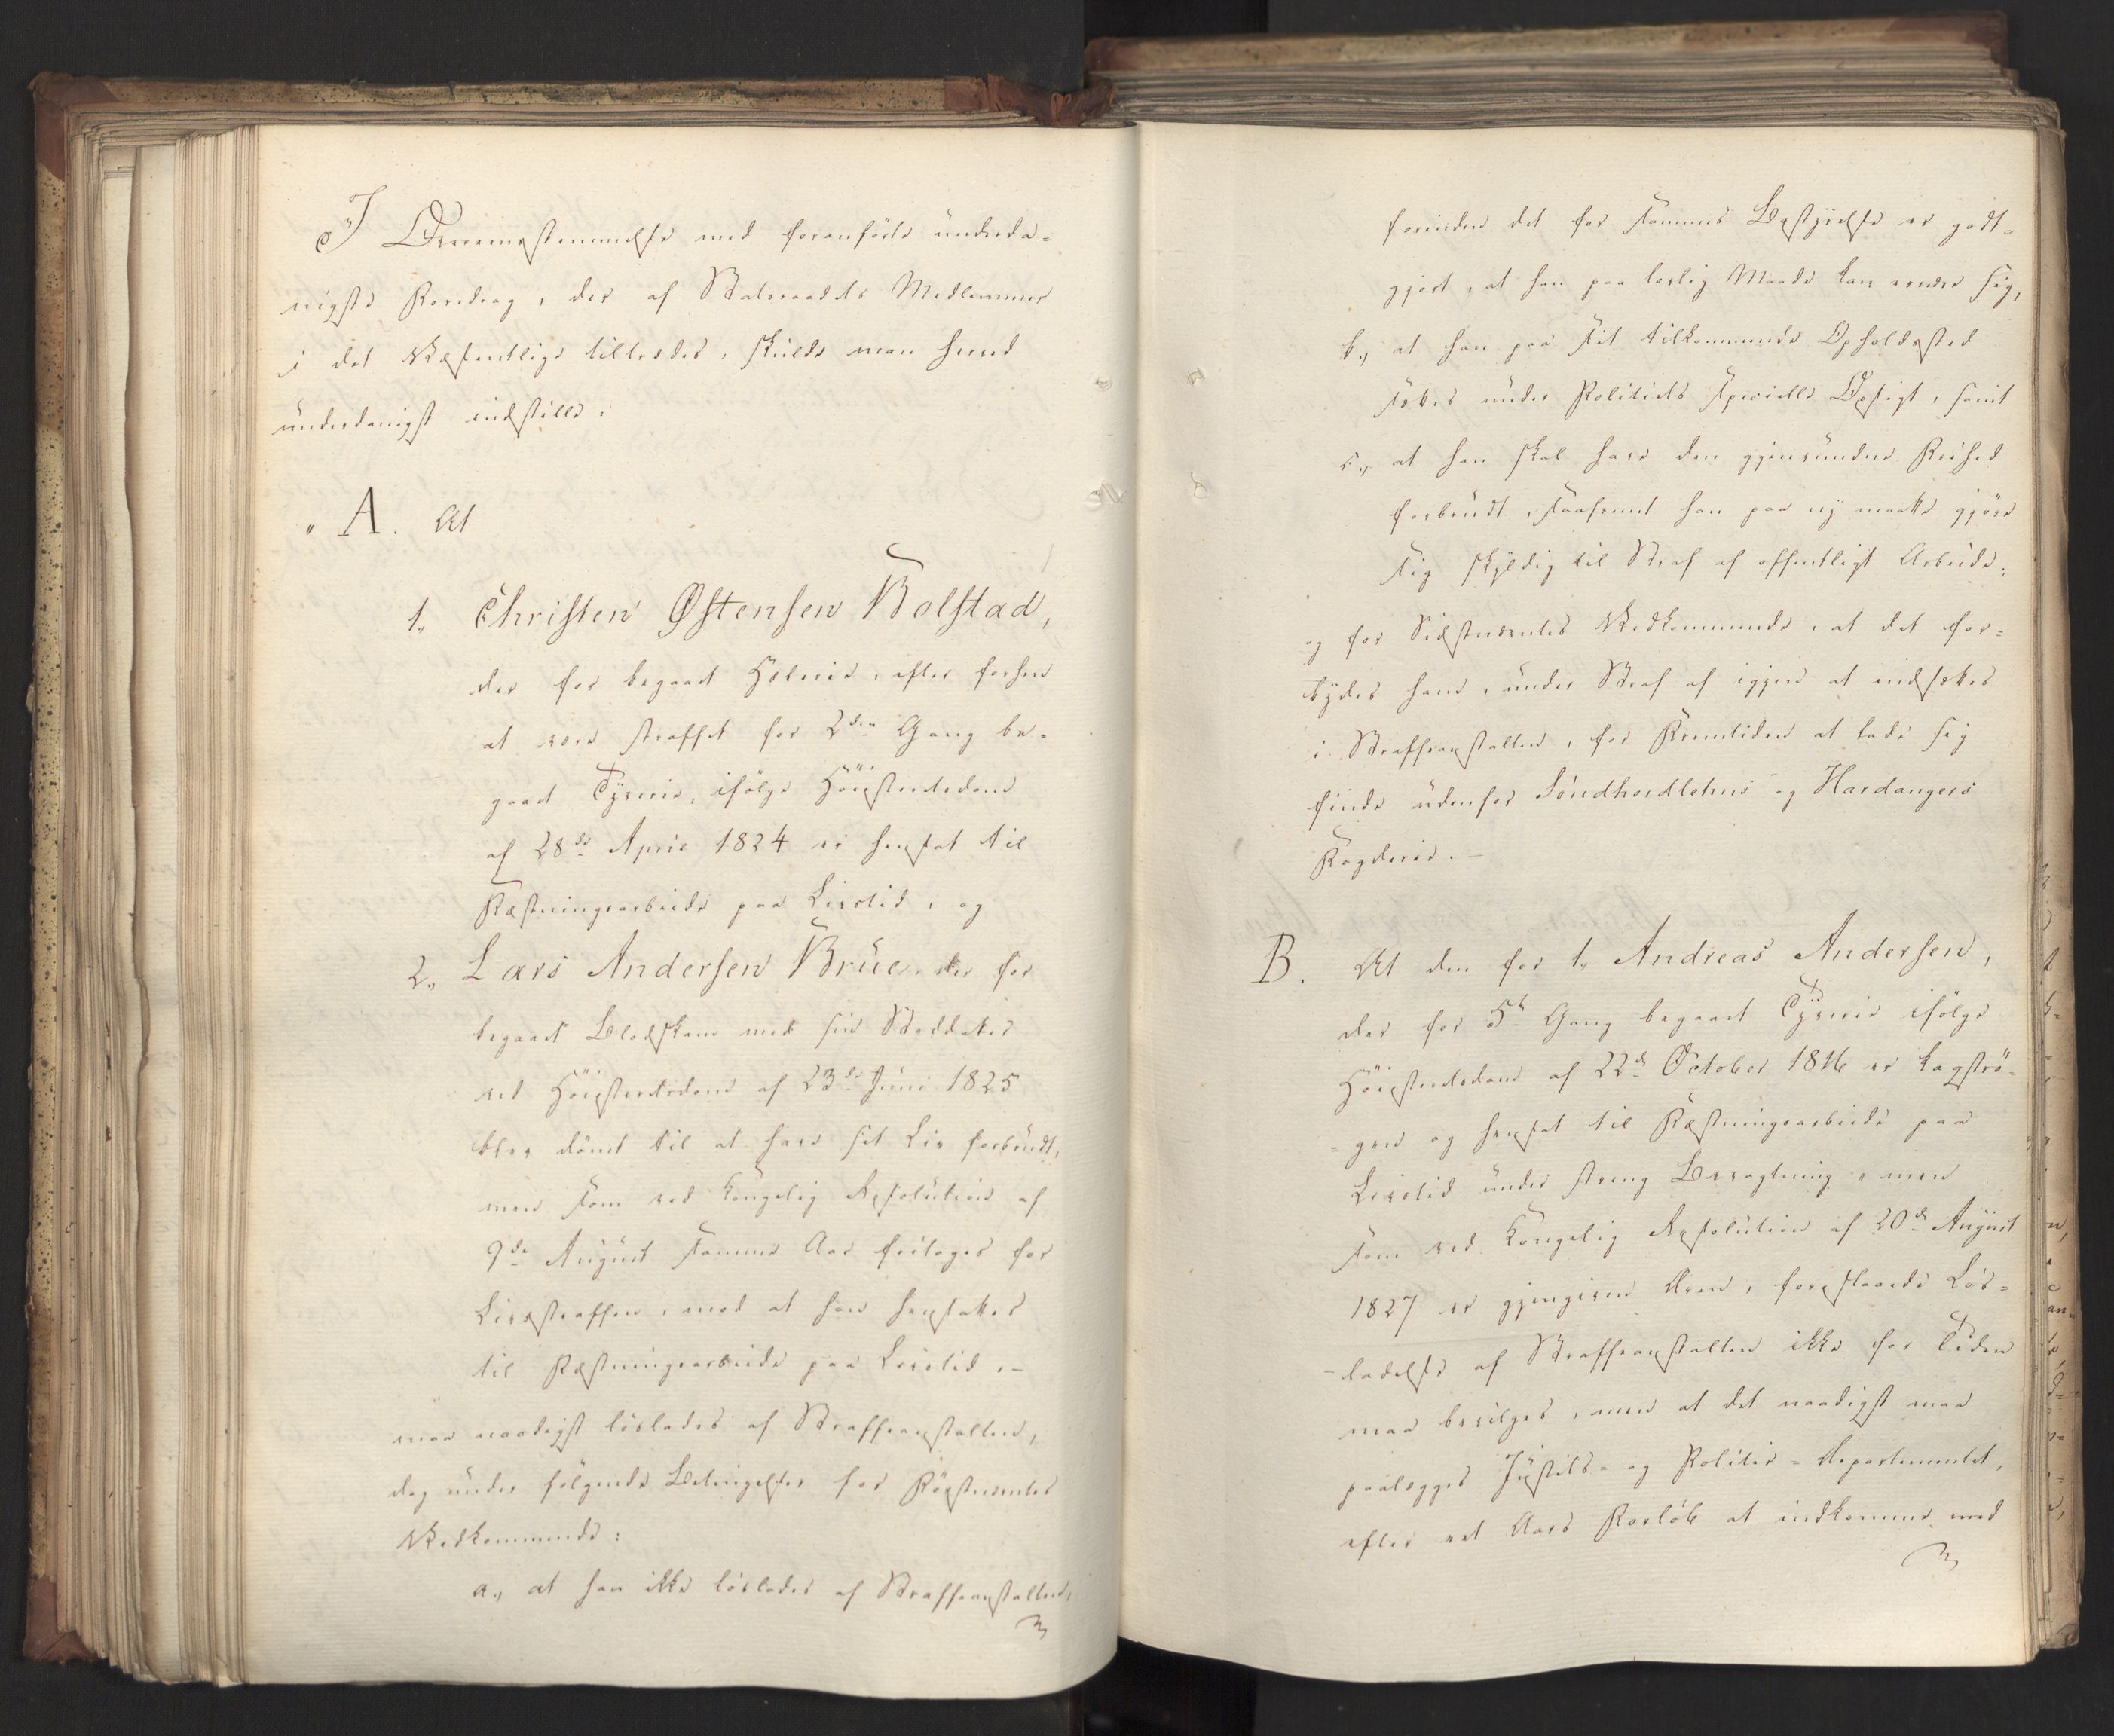 I Overeensstemmelse med foranførte underda-
nigste Foredrag, der af Statsraadets Medlemmer
i det Væsentlige tiltrædes, skulde man herved
underdanigst indstille:
" A. At
1., Christen Østensen Bolstad,
der for begaaet Hæleri, efter forhen
at være straffet for 2den Gang be-
gaaet Tyverie, ifølge Høiesteretsdom
af 28de April 1824 er hensat til
Fæstningsarbeide paa Livstid, og
2., Lars Andersen Brue, der for
begaaet Blodskam med sin Steddatter
ved Høiesteretsdom af 23de Juni 1825
blev dømt til at have sit Liv forbrudt,
men som ved Kongelig Resolution af
9de August samme Aar fritoges for
Livsstraffen, mod at han hensattes
til Fæstningsarbeide paa Livstid, –
maa naadigst løslades af Straffeanstalten,
dog under følgende Betingelser for Førstnævntes
Vedkommende:
a., at han ikke løslades af Straffeanstalten,
forinden det for sammes Bestyrelse er godt-
gjort, at han paa lovlig Maade kan ernære sig,
b., at han paa sit tilkommende Opholdssted
sættes under Politiets specielle Opsigt, samt
c., at han skal have den gjenvundne Frihed
forbrudt, saafremt han paa ny maatte gjøre
sig skyldig til Straf af offentligt Arbeide;
og for Sidstnævntes Vedkommende, at det for-
bydes ham, under Straf af igjen at indsættes
i Straffeanstalten, for Fremtiden at lade sig
finde udenfor Søndhordlehns og Hardangers
Fogderie. –
B. At den for 1., Andreas Andersen,
der for 5te Gang begaaet Tyverie ifølge
Høiesteretsdom af 22de October 1816 er kagstrø-
-gen og hensat til Fæstningsarbeide paa
Livstid under streng Bevogtning, men
som ved Kongelig Resolution af 20de August
1827 er gjengiven Æren, foreslaaede Løs-
-ladelse af Straffeanstalten ikke for Tiden
maa bevilges, men at det naadigst maa
paalægges Justits- og Politie-Departementet,
efter et Aars Forløb at indkomme med